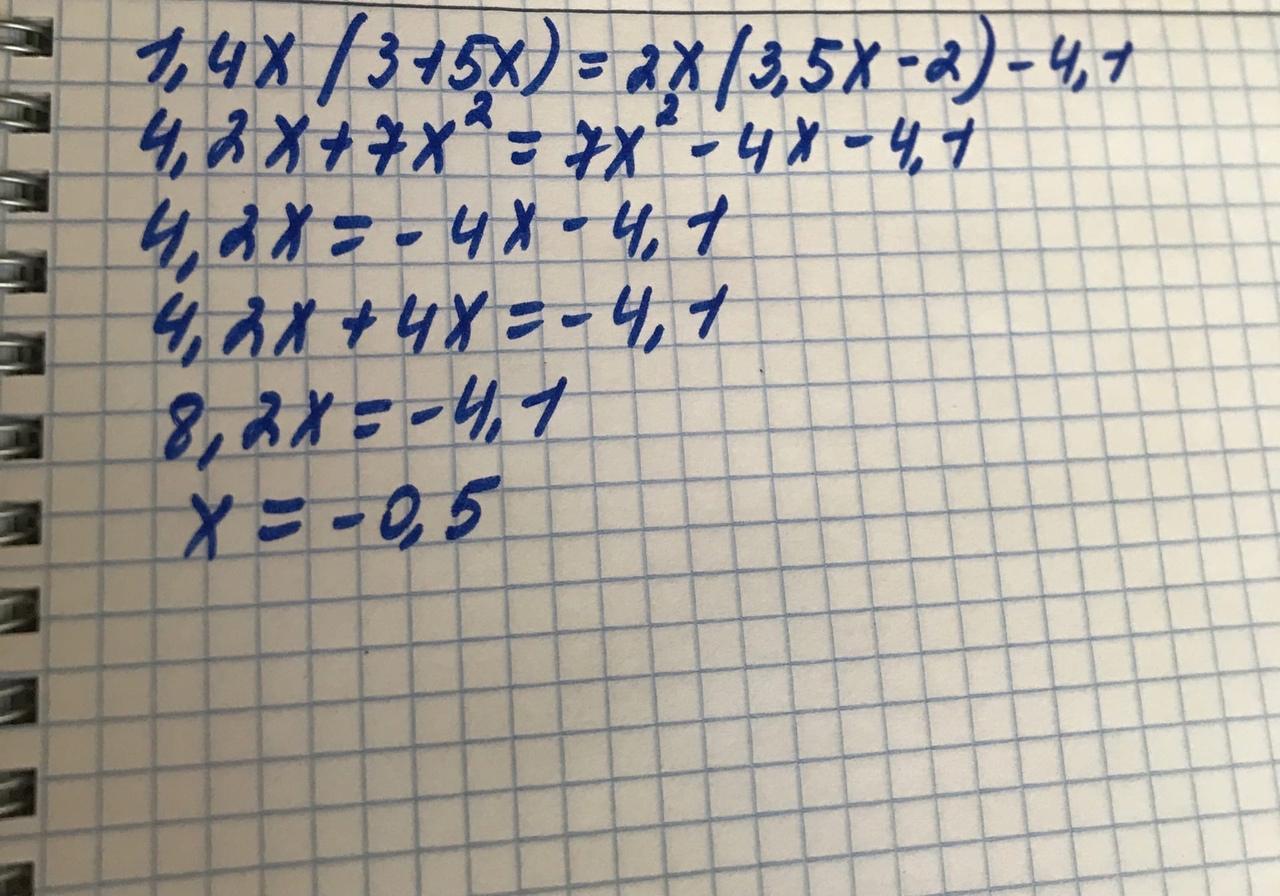 1,4x(3+5x)=2x(3,5x-2)-4,1
4,2x+7x²=7x²-4x-4,1
4,2x=-4x-4,1
4,2x+4x=-4,1
8,2x=-4,1
x=-0,5